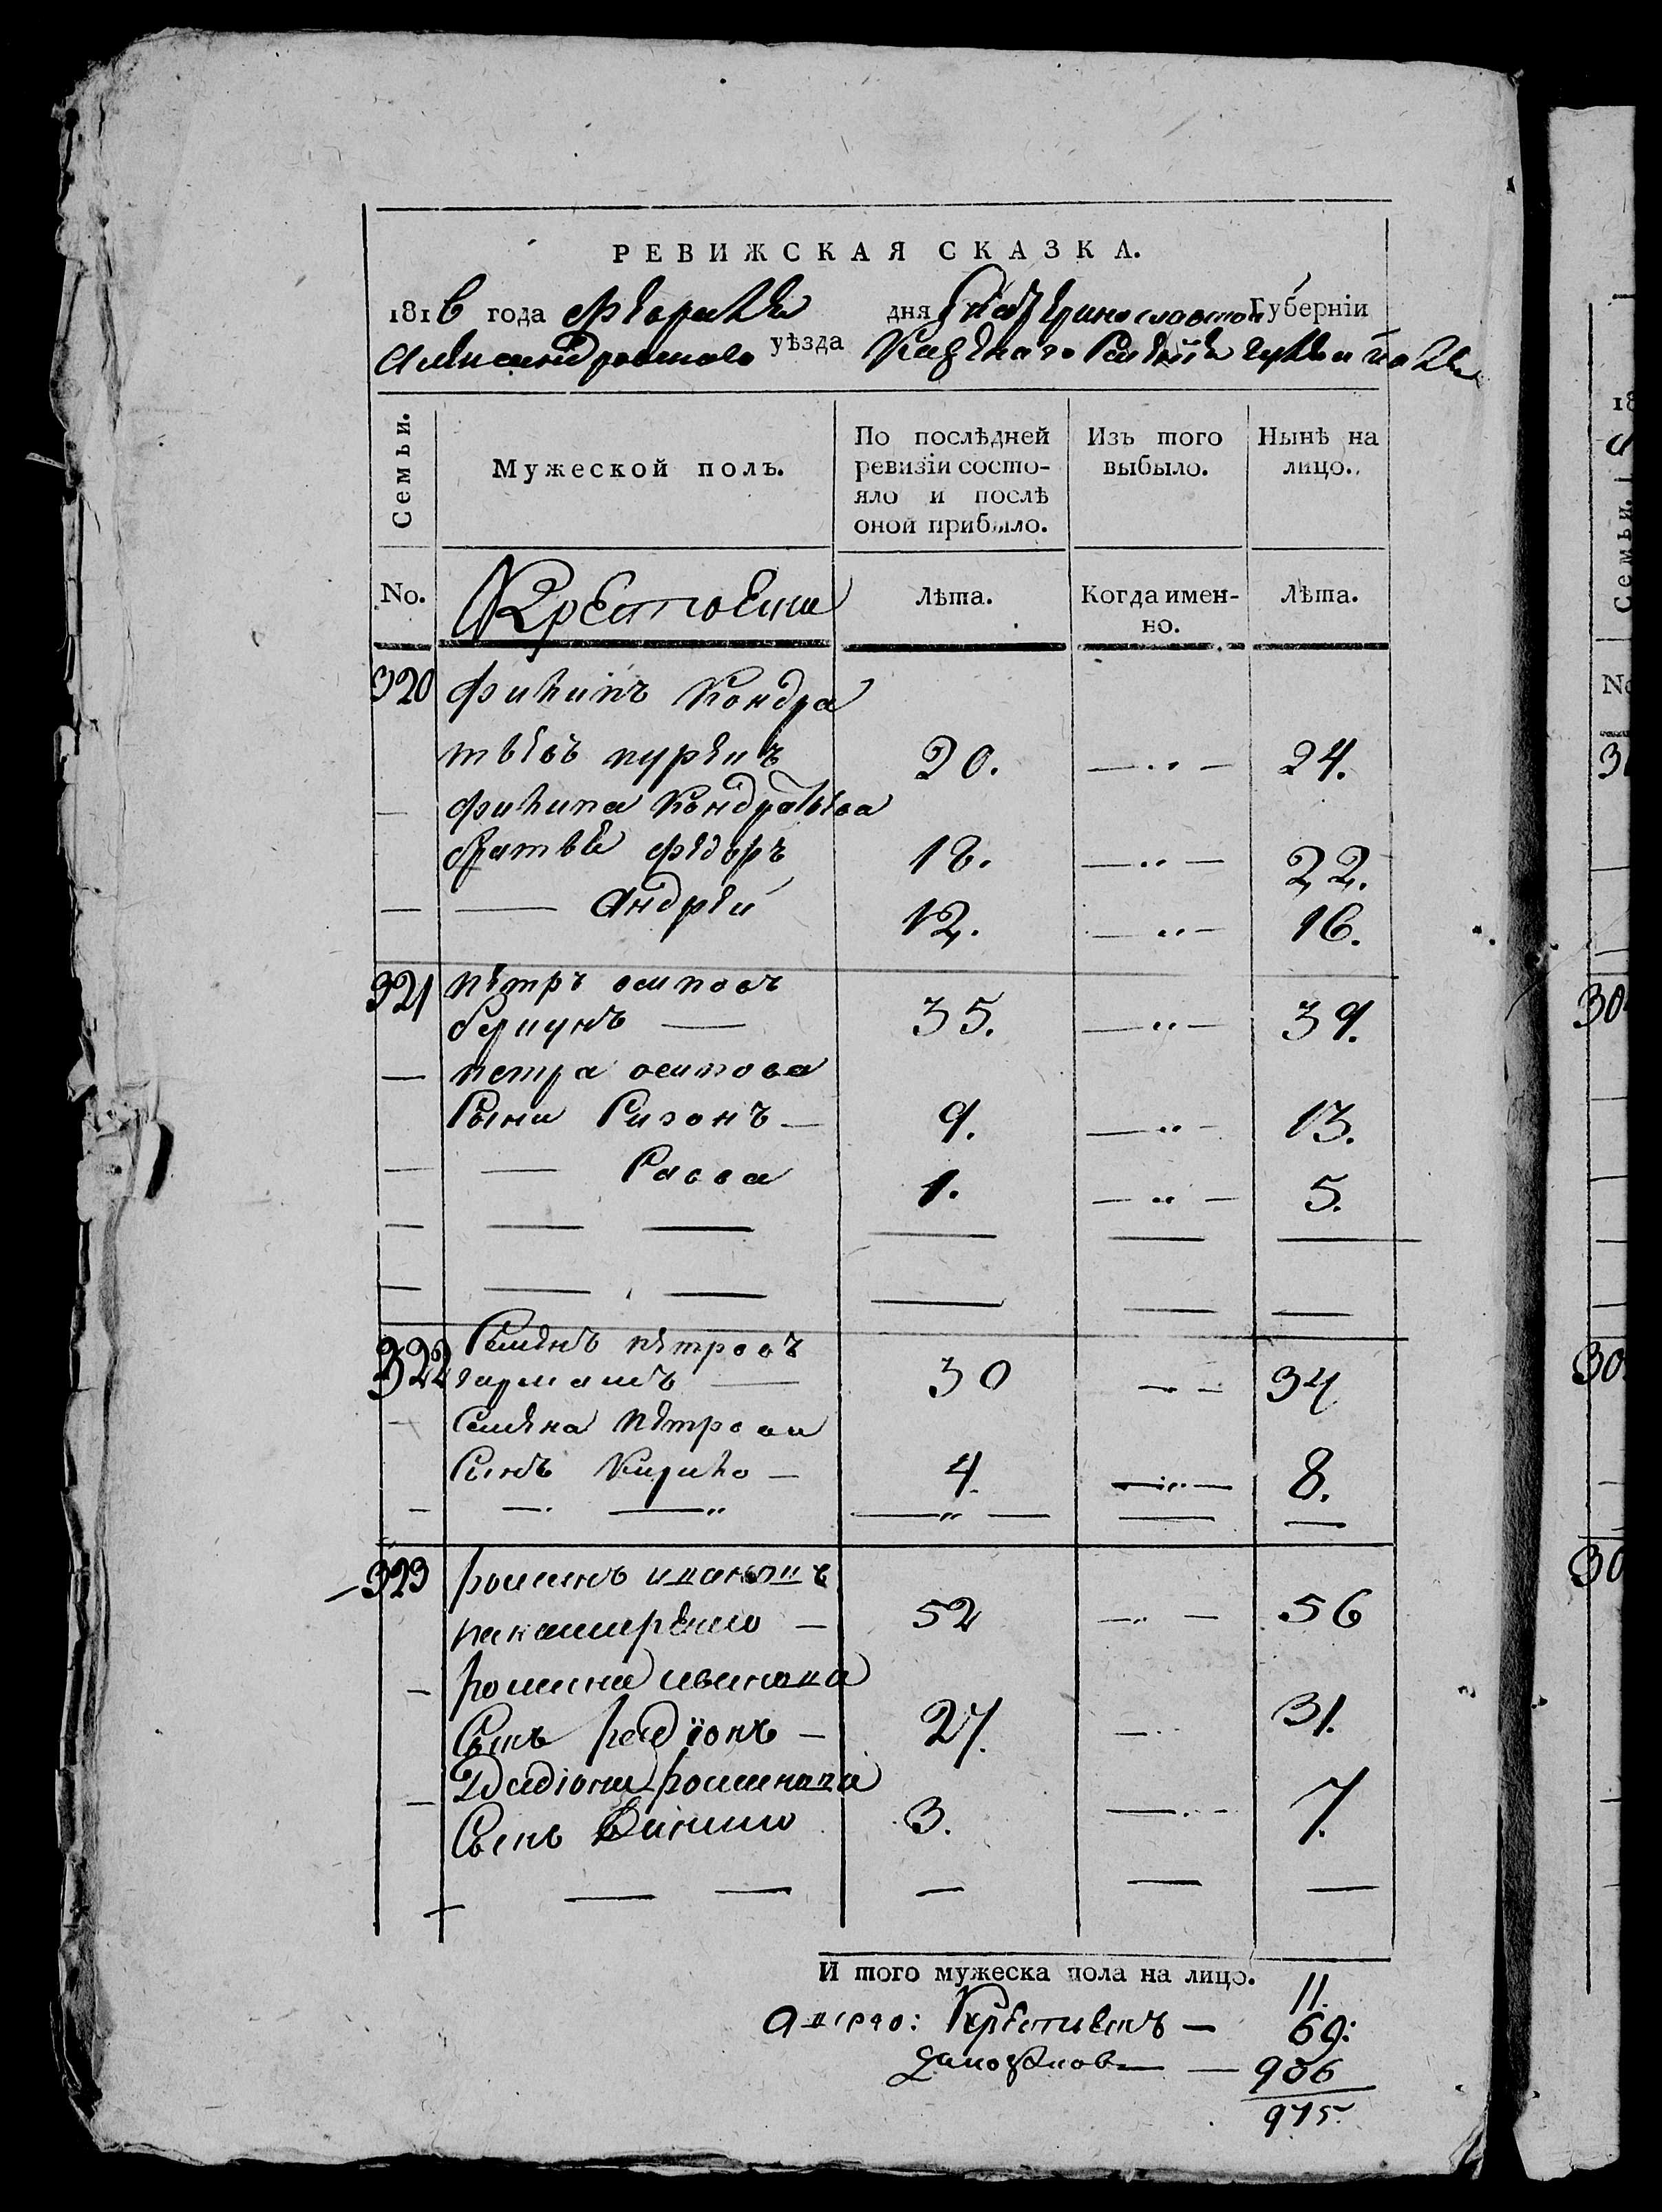 РЕВИЖСКАЯ СКАЗКА.
1816 года февраля дня Екатеринославской Губерніи
Александровского уѣзда Казенаго Селенія
Семьи.
Мужеской полъ.
По послѣдней ревизіи состо-
яло и послѣ
оной прибыло.
Изъ того
выбыло.
Нынѣ на
лицо.
No.
Крестьяни
Лѣта.
Когда имен-
но.
Лѣта.
320 Филипъ Кондра
тьевъ курѣнъ 20. — „ — 24.
— Филипа Кондратьева
братье Федоръ 18. — „ — 22.
— — Андрей 12. — „ — 16.
321 Петръ осиповъ
35. — „ — 39.
— петра осипова
Сыни Сизонъ — 9. — „ — 13.
— — Савва 1. — „ — 5.
322 Семенъ петровъ
гармашъ — 30 — — 34
— Семена петрова
Сынъ Кирило — 4. — „ — 8.
323 романъ ивановъ
52 — „ — 56
— романа иванова
Сынъ радіонъ — 27. — 31.
— Радіона романова
Сынъ 3. — 7.
И того мужеска пола на лицо. 11.
а всего: Крестьянъ — 69:
— 906
975.